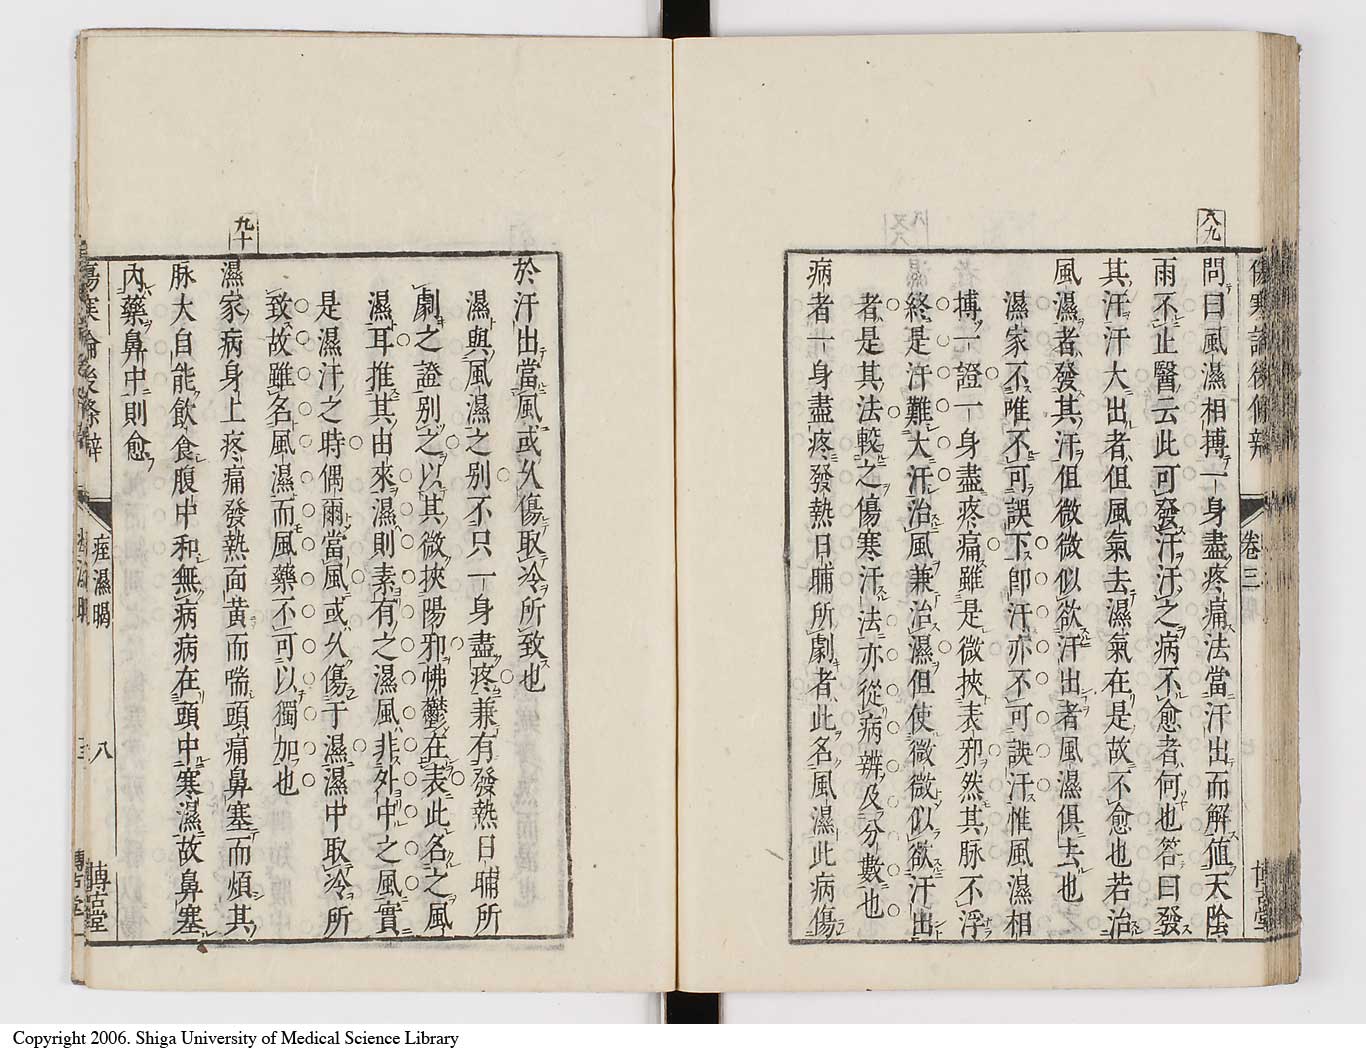 八九
傷寒論後條辨
卷三
博古堂
問曰風濕相搏一身盡疼痛法當汗出而解值天陰
雨不止醫云此可發汗汗之病不愈者何也答曰發
其汗汗大出者但風氣去濕氣在是故不愈也若治
風濕者發其汗但微微似欲汗出者風濕俱去也
濕家不唯不可誤下卽汗亦不可誤汗惟風濕相
搏一證一身盡疼痛雖是微挾表邪然其脉不浮
終是汗難大汗治風兼治濕但使微微似欲汗出
者是其法較之傷寒汗法亦從病辨及分數也
病者一身盡疼發熱日晡所劇者此名風濕此病傷
於汗出當風或久傷取冷所致也
濕與風濕之别不只一身盡疼兼有發熱日晡所
劇之證别之以其微挾陽邪怫鬱在表此名之風
濕耳推其由來濕則素有之濕風非外中之風實
是濕汗之時偶爾當風或久傷于濕濕中取冷所
致故雖名風濕而風藥不可以獨加也
九十
濕家病身上疼痛發熱面黃而喘頭痛鼻塞而煩其
脉大自能飲食腹中和無病病在頭中寒濕故鼻塞
內藥鼻中則愈
傷寒論後條辨
痙濕暍
八
博古堂
Copyright 2006. Shiga University of Medical Science Library